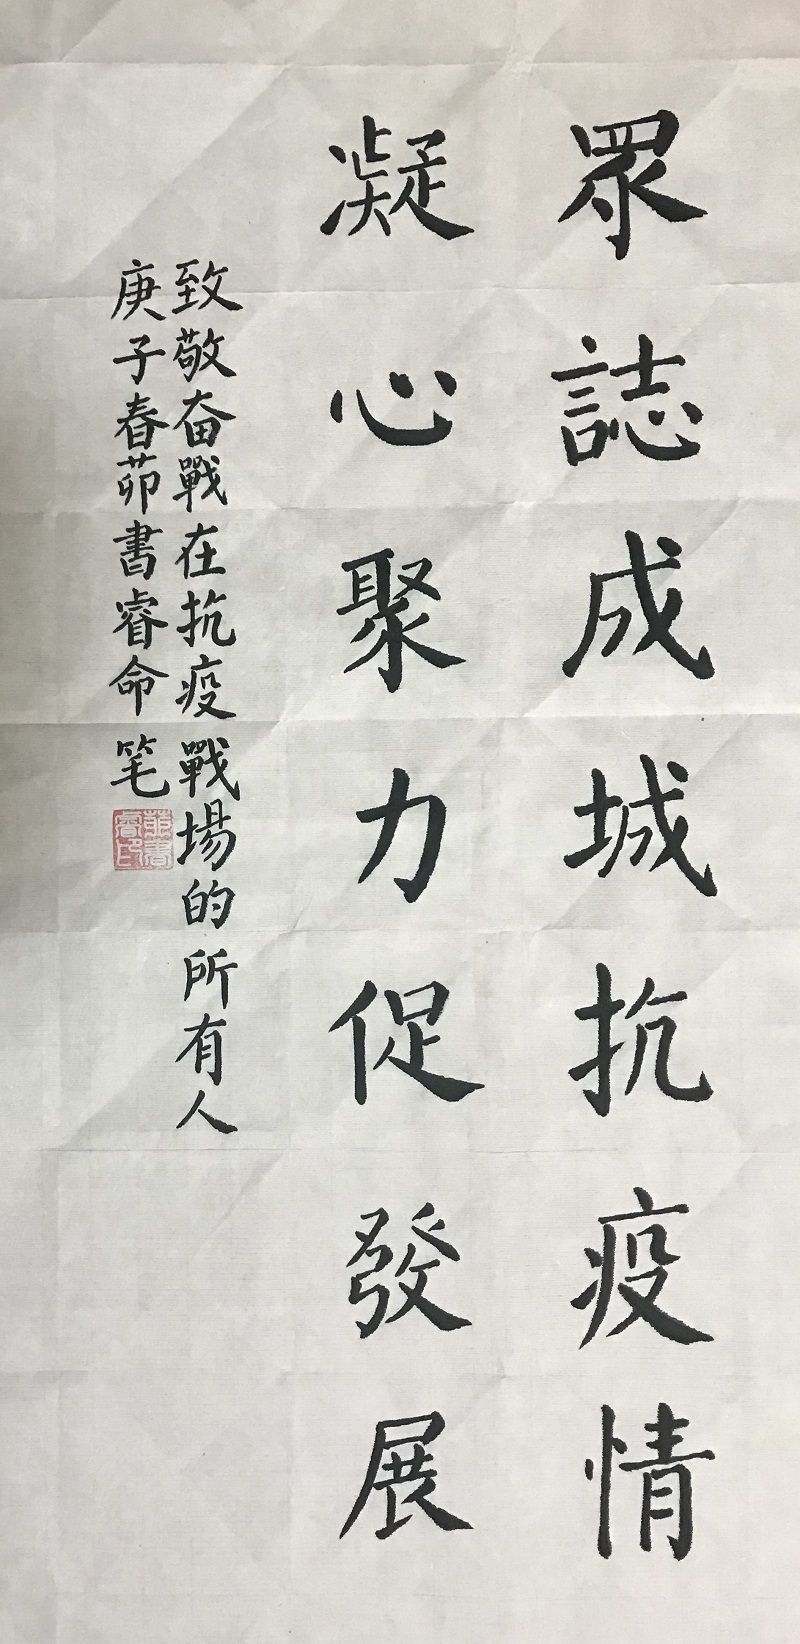 眾誌成城抗疫情
凝心聚力促發展
致敬奋戰在抗疫戰場的所有人
庚子春茆書睿命笔
茆書睿印